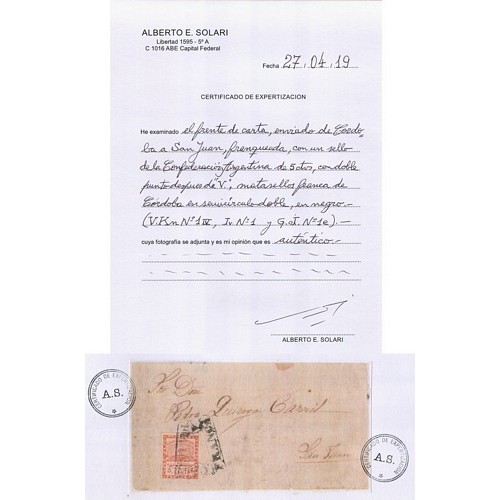 ALBERTO E. SOLARI
Libertad 1595 - 5º A
C 1016 ABE Capital Federal
Fecha 27.04.19
CERTIFICADO DE EXPERTIZACION
He examinado el frente de carta, enviado de Cordo-
ba a San Juan, franqueada, con un sello
de la Confederación Argentina de 5 ctvs, con doble
punto despues de "V", matasellos franca de
Cordoba en semicírculo doble, en negro.-
(V.Kn Nº1IV, Iv. Nº1 y G.J. Nº1e).-
cuya fotografía se adjunta y es mi opinión que es auténtico.-
ALBERTO E. SOLARI
CERTIFICADO DE EXPERTIZACION
A.S.
Sor Don
Quiroga
San Juan
CERTIFICADO DE EXPERTIZACION
A.S.